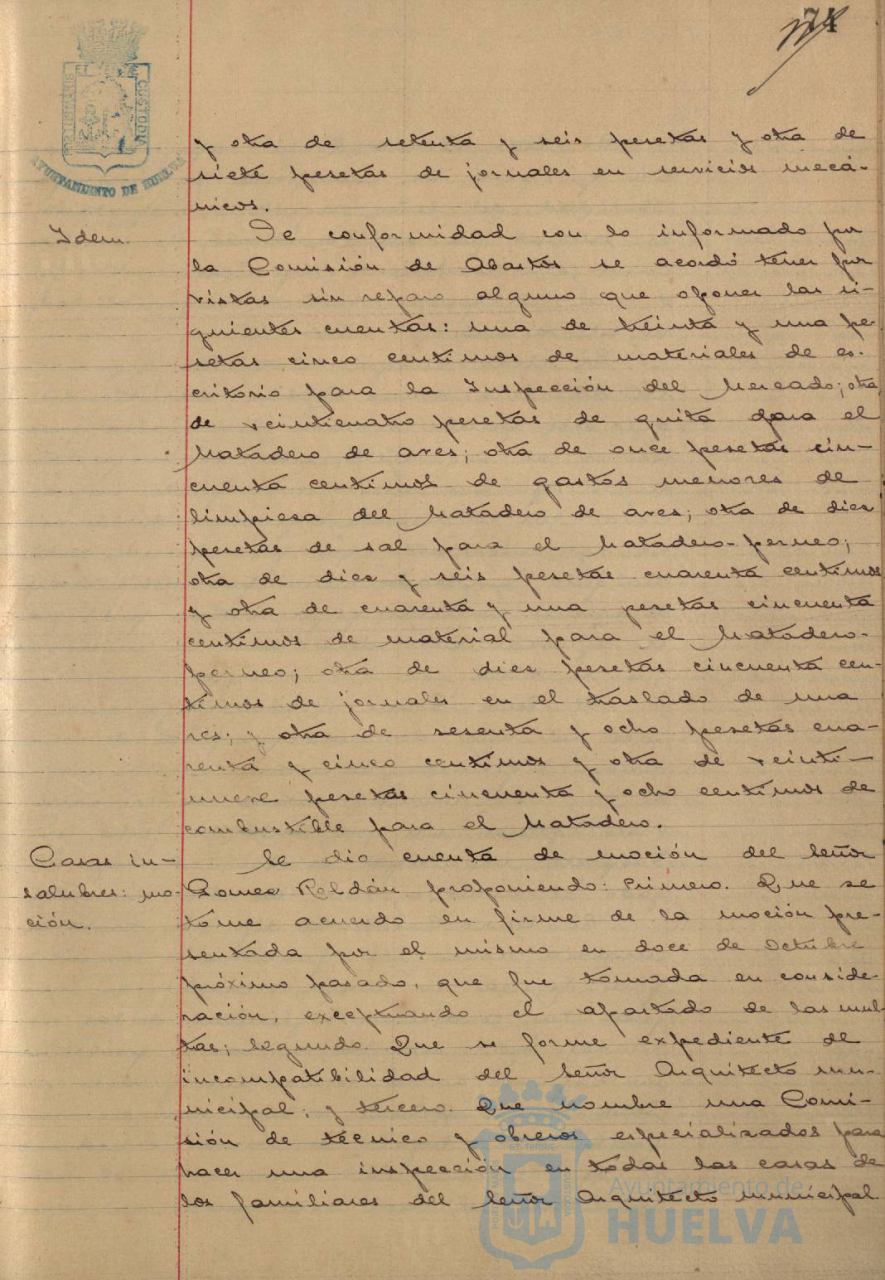 74
PORTUS MARIS ET TERRAE CUSTODIA
AYUNTAMIENTO DE HUELVA
y otra de setenta y seis pesetas y otra de
siete pesetas de jornales en servicios mecá-
nicos.
Idem.
De conformidad con lo informado por
la Comisión de Abastos se acordó tener por
vistas sin reparo alguno que oponer las si-
guientes cuentas: una de treinta y una pe-
setas cinco centimos de materiales de es-
critorio para la Inspección del Mercado; otra
de veinticuatro pesetas de guita para el
Matadero de aves; otra de once pesetas cin-
cuenta centimos de gastos menores de
limpiesa del Matadero de aves; otra de dies
pesetas de sal para el Matadero-perneo;
otra de dies y seis pesetas cuarenta centimos
y otra de cuarenta y una pesetas cincuenta
centimos de material para el Matadero-
perneo; otra de dies pesetas cincuenta cen-
timos de jornales en el traslado de una
res; y otra de sesenta y ocho pesetas cua-
renta y cinco centimos y otra de veinti-
nueve pesetas cincuenta y ocho centimos de
combustible para el Matadero.
Casas in-
salubres: mo-
ción.
Se dio cuenta de moción del Señor
Gomes Roldán proponiendo: Primero. Que se
tome acuerdo en firme de la moción pre-
sentada por el mismo en doce de Octubre
próximo pasado, que fue tomada en conside-
ración, exceptuando el apartado de las mul-
tas; Segundo. Que se forme expediente de
incompatibilidad del Señor Arquitecto mu-
nicipal; y tercero. Que nombre una Comi-
sión de técnico y obreros especializados para
hacer una inspección en todas las casas de
los familiares del Señor Arquitecto municipal
Ayuntamiento de
HUELVA